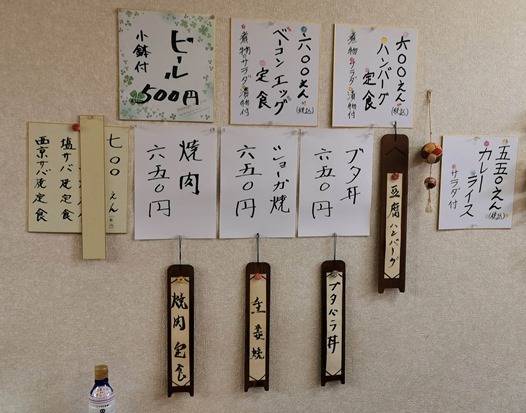 六〇〇えん(税込)
ハンバーグ
定食
煮物 サラダ 漬物付
六〇〇えん(税込)
ベーコンエッグ
定食
煮物 サラダ 漬物付
ビール
小鉢付
500円
五五〇えん(税込)
カレー
ライス
サラダ付
豆腐ハンバーグ
ブタ丼
六五〇円
ショーガ焼
六五〇円
焼肉
六五〇円
七〇〇えん
塩サバ焼定食
西京サバ焼定食
ブタバラ丼
生姜焼
焼肉定食